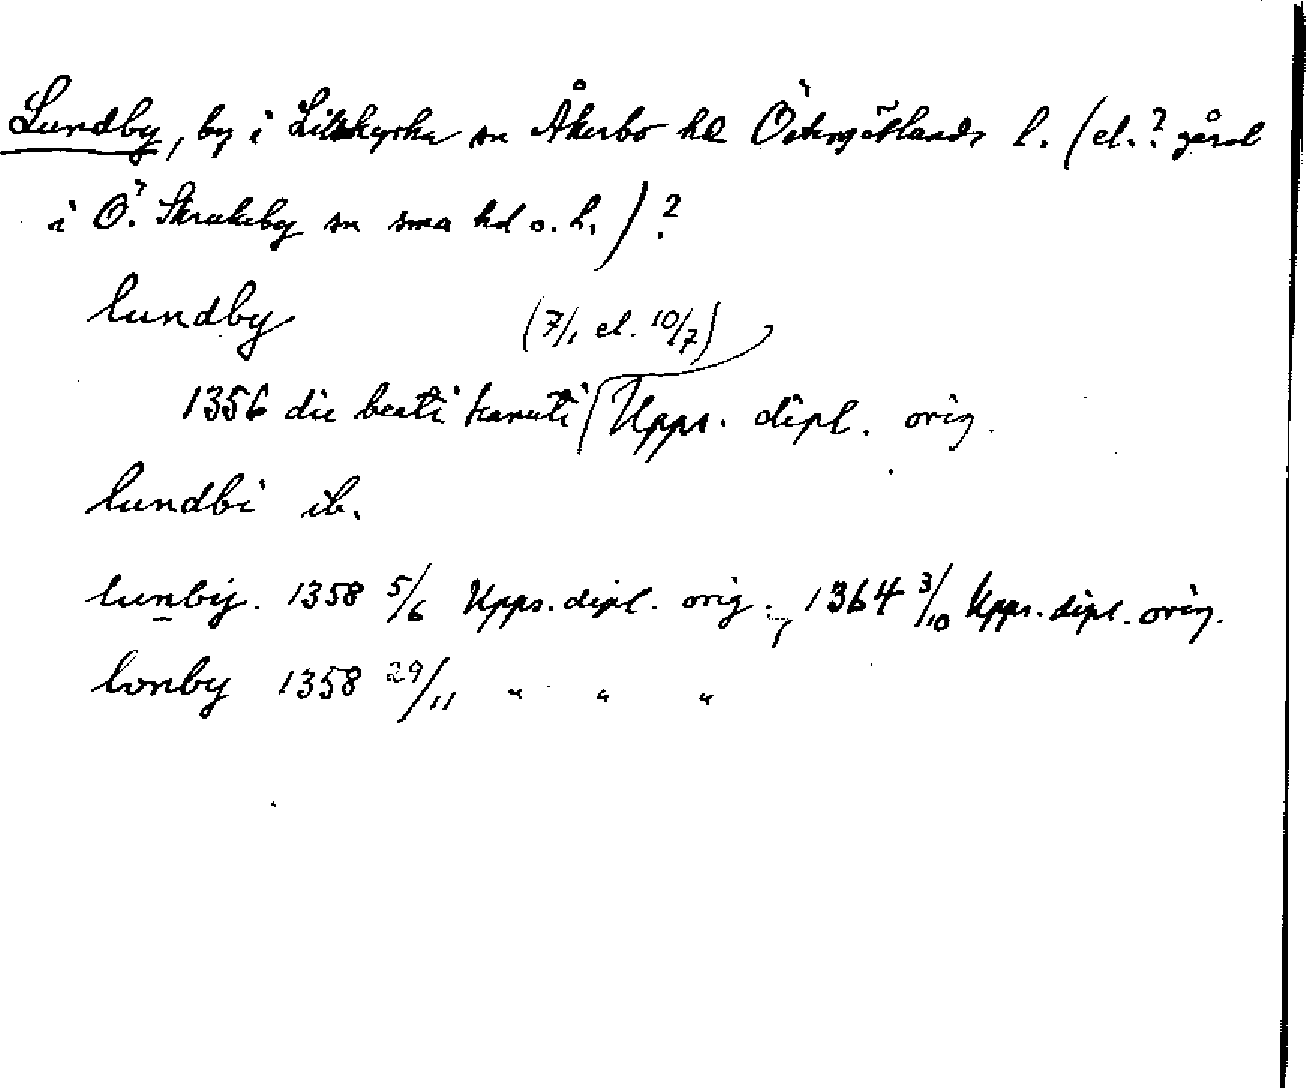 Lundby, by i Lillkyrka sn Åkerbo hd Östergötlands l. (el.? gård
i Ö. Skrukeby sn sma hd o. l.)?
lundby (7/1 el. 10/7)
1356 die beati kanuti Upps. dipl. orig.
lundbi ib.
lunbij. 1358 5/6 Upps. dipl. orig., 1364 3/10 Upps. dipl. orig.
lonby 1358 29/11 " " "